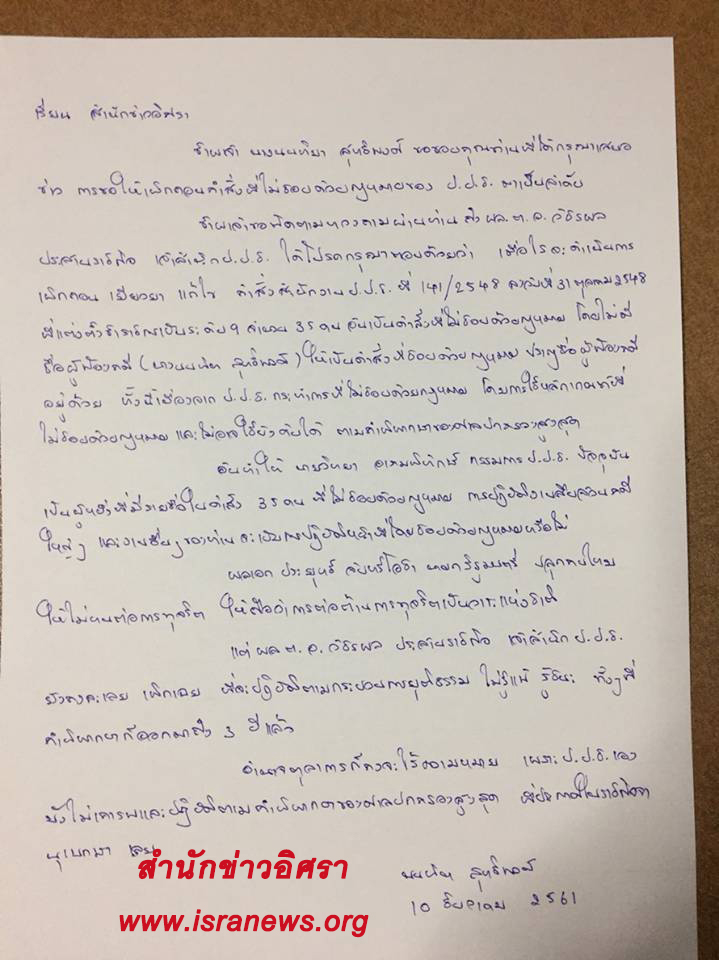 เรียน สำนักข่าวอิศรา
ข้าพเจ้า นางนนทิยา สุทธิพงศ์ ขอขอบคุณท่านที่ได้กรุณาเสนอ
ข่าว การขอให้เพิกถอนคำสั่งที่ไม่ชอบด้วยกฎหมายของ ป.ป.ช. มาเป็นลำดับ
ข้าพเจ้าขอติดตามทวงถามผ่านท่าน ถึง พล.ต.อ. วัชรพล
ประสารราชกิจ เจ้าสำนัก ป.ป.ช. ได้โปรดกรุณาตอบด้วยว่า เมื่อไรจะดำเนินการ
เพิกถอน เยียวยา แก้ไข คำสั่งสำนักงาน ป.ป.ช. ที่ 141/2548 ลงวันที่ 31 ตุลาคม 2548
ที่แต่งตั้งข้าราชการเป็นระดับ 9 จำนวน 35 คน อันเป็นคำสั่งที่ไม่ชอบด้วยกฎหมาย โดยไม่มี
ชื่อผู้ฟ้องคดี ( สุทธิพงศ์ ) ให้เป็นคำสั่งที่ชอบด้วยกฎหมาย ปรากฏชื่อผู้ฟ้องคดี
อยู่ด้วย ทั้งนี้เนื่องจาก ป.ป.ช. กระทำการที่ไม่ชอบด้วยกฎหมาย โดยการใช้หลักเกณฑ์ที่
ไม่ชอบด้วยกฎหมาย และไม่อาจใช้บังคับได้ ตามคำพิพากษาของศาลปกครองสูงสุด
อันทำให้ นายวิทยา อาคมพิทักษ์ กรรมการ ป.ป.ช. ปัจจุบัน
เป็นผู้หนึ่งที่มีรายชื่อในคำสั่ง 35 คน ที่ไม่ชอบด้วยกฎหมาย การปฏิบัติงานไต่สวนคดี
ใหญ่ๆ และงานอื่นๆ ของท่าน จะเป็นการปฏิบัติหน้าที่โดยชอบด้วยกฎหมายหรือไม่
พลเอก ประยุทธ์ จันทร์โอชา นายกรัฐมนตรี ปลุกคนไทย
ให้ไม่ทนต่อการทุจริต ให้ถือว่าการต่อต้านการทุจริตเป็นวาระแห่งชาติ
แต่ พล.ต.อ. วัชรพล ประสารราชกิจ เจ้าสำนัก ป.ป.ช.
ยังคงละเลย เพิกเฉย ที่จะปฏิบัติตามกระบวนการยุติธรรม ไม่รู้แพ้ รู้ชนะ ทั้งๆ ที่
คำพิพากษาก็ออกมาถึง 3 ปีแล้ว
อำนาจตุลาการก็คงจะไร้ความหมาย เพราะ ป.ป.ช. เอง
ยังไม่เคารพและปฏิบัติตามคำพิพากษาของศาลปกครองสูงสุด ที่ประกาศในราชกิจจา
นุเบกษา เลย
สุทธิพงศ์
10 ธันวาคม 2561
สำนักข่าวอิศรา
www.isranews.org